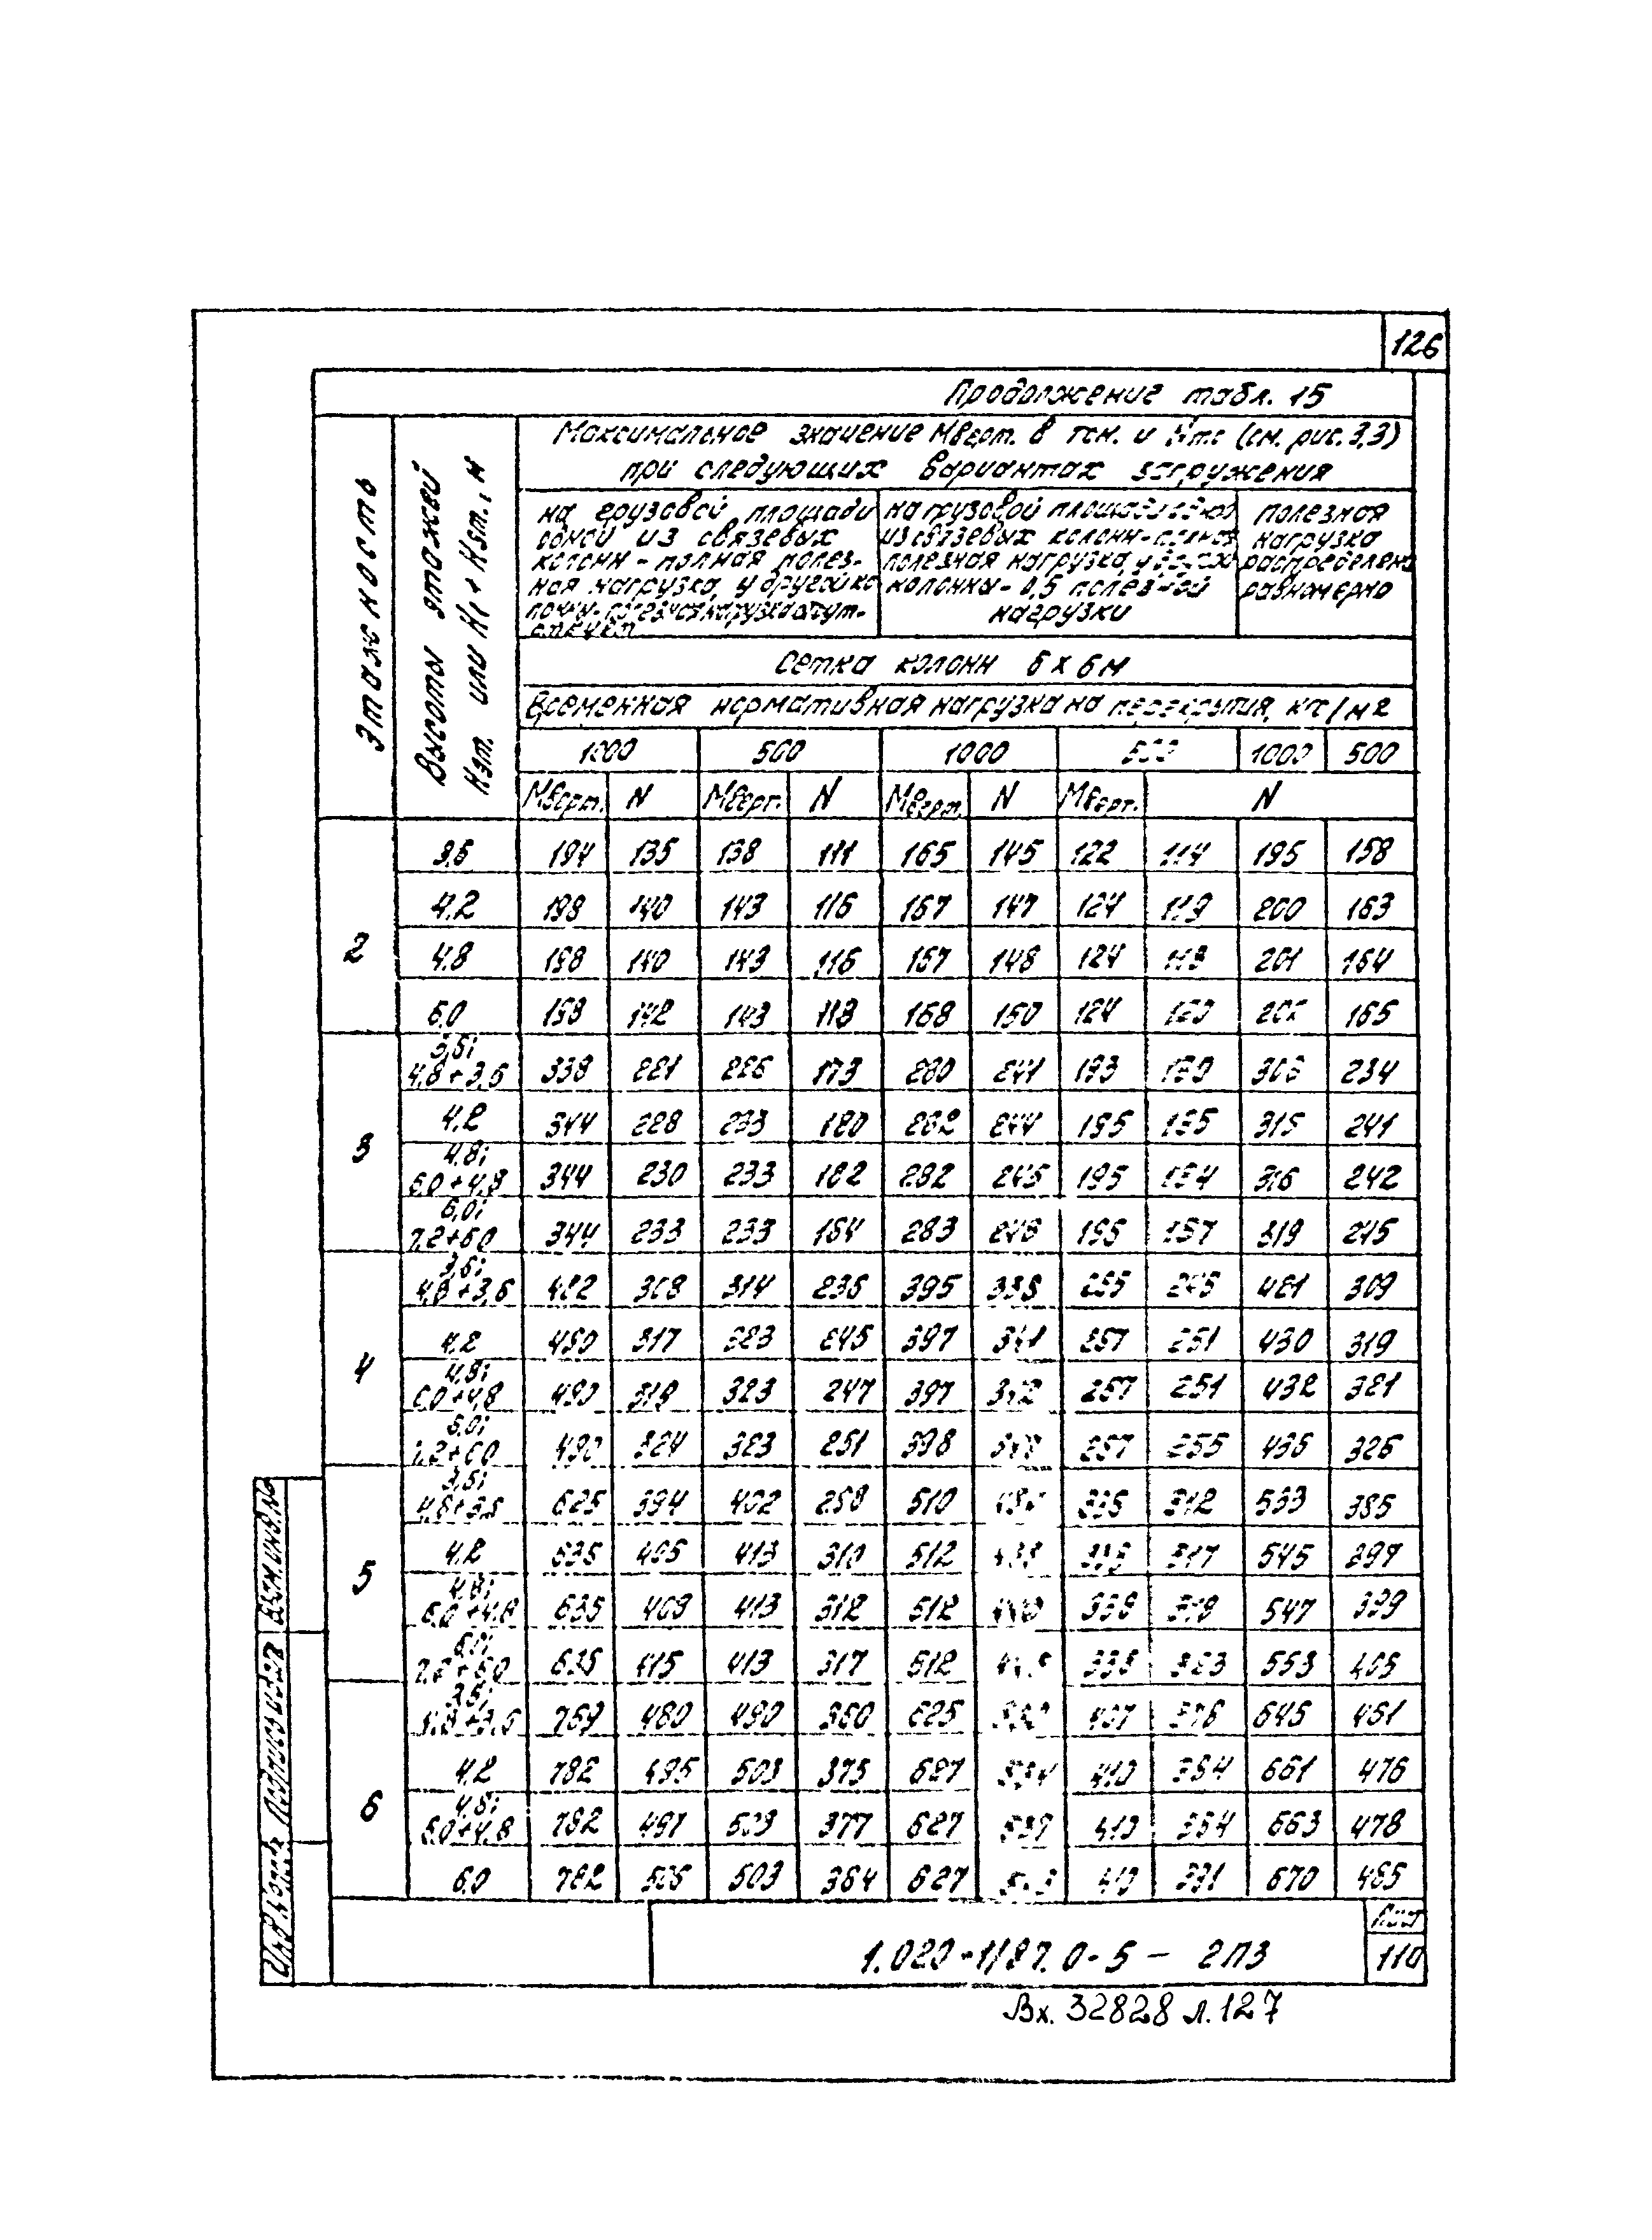 126
Продолжение табл. 15
Этажность
Высоты этажей
Нэт. или Н1 + Нэт., м
Максимальное значение Мверт. в тсм. и Nтс (см. рис. 3,3)
при следующих вариантах загружения
на грузовой площади
одной из связевых
колонн - полная полез-
ная нагрузка, у другой ко
лонны - полезная нагрузка отсут-
ствует
на грузовой площади одной
из связевых колонн - полная
полезная нагрузка, у
колонны - 0,5 полезной
нагрузки
полезная
нагрузка
распределена
равномерно
Сетка колонн 6 х 6 м
Временная нормативная нагрузка на перекрытия, кг/м2
1000 500 1000 500 1000 500
Мверт. N Мверт. N Мверт. N Мверт. N
2
3,6 194 135 138 111 165 145 122 114 195 158
4.2 198 140 143 116 167 147 124 119 200 163
4.8 198 140 143 116 167 148 124 201 164
6.0 198 142 143 118 168 150 124 120 165
3
3,6;
4,8+3,6 338 221 226 173 280 241 193 306 234
4.2 344 228 233 180 282 244 195 315 241
4,8;
6.0+4,8 344 230 233 182 282 245 195 316 242
6,0;
7,2+6.0 344 233 233 184 283 195 319 245
4
3,6;
4,8+3,6 482 308 314 236 395 338 255 245 421 309
4.2 490 317 323 245 397 341 257 251 430 319
4,8;
6.0+4,8 490 319 323 247 397 342 257 251 432 321
6,0;
7,2+6.0 490 324 323 251 398 257 255 436 326
5
3,6;
4,8+3,6 625 394 402 298 510 335 312 533 385
4.2 635 405 413 310 512 338 317 545 397
4,8;
6.0+4.8 635 409 413 312 512 338 319 547 399
6,0;
7.2+6.0 635 415 413 317 512 338 323 553 405
6
3,6;
4,8+3,6 769 480 490 360 625 407 376 645 461
4.2 782 495 503 375 627 534 410 384 661 476
4,8;
6.0+4,8 782 497 503 377 627 539 410 384 663 478
6.0 782 506 503 384 627 543 410 391 670 485
Инв.№ подл. Подпись и дата Взам.инв.№
1.020-1/87. 0-5 - 2ПЗ
Лист
110
Вх. 32828 л. 127